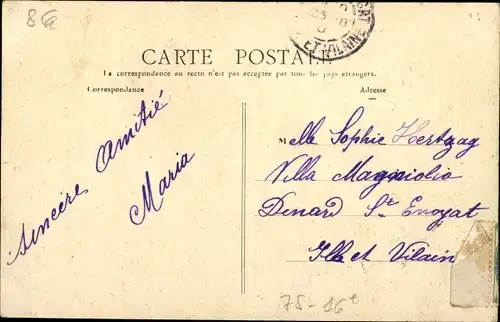 8 €a
CARTE POSTALE
La correspondance au recto n'est pas acceptée par tous les pays étrangers.
Correspondance
Adresse
ET VILAINE
Sincère Amitié
Maria
Melle Sophie Hertzag
Villa Magniolia
Denard St Enogat
Ille et Vilain
75-16e